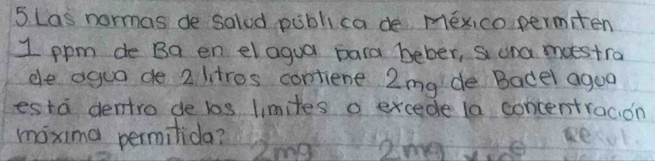 5. Las normas de salud pública de México permiten
1 ppm de Ba en el agua para beber, si una muestra
de agua de 2 litros contiene 2mg de Ba del agua
está dentro de los limites o excede la concentración
máxima permitida?
2mg 2mg